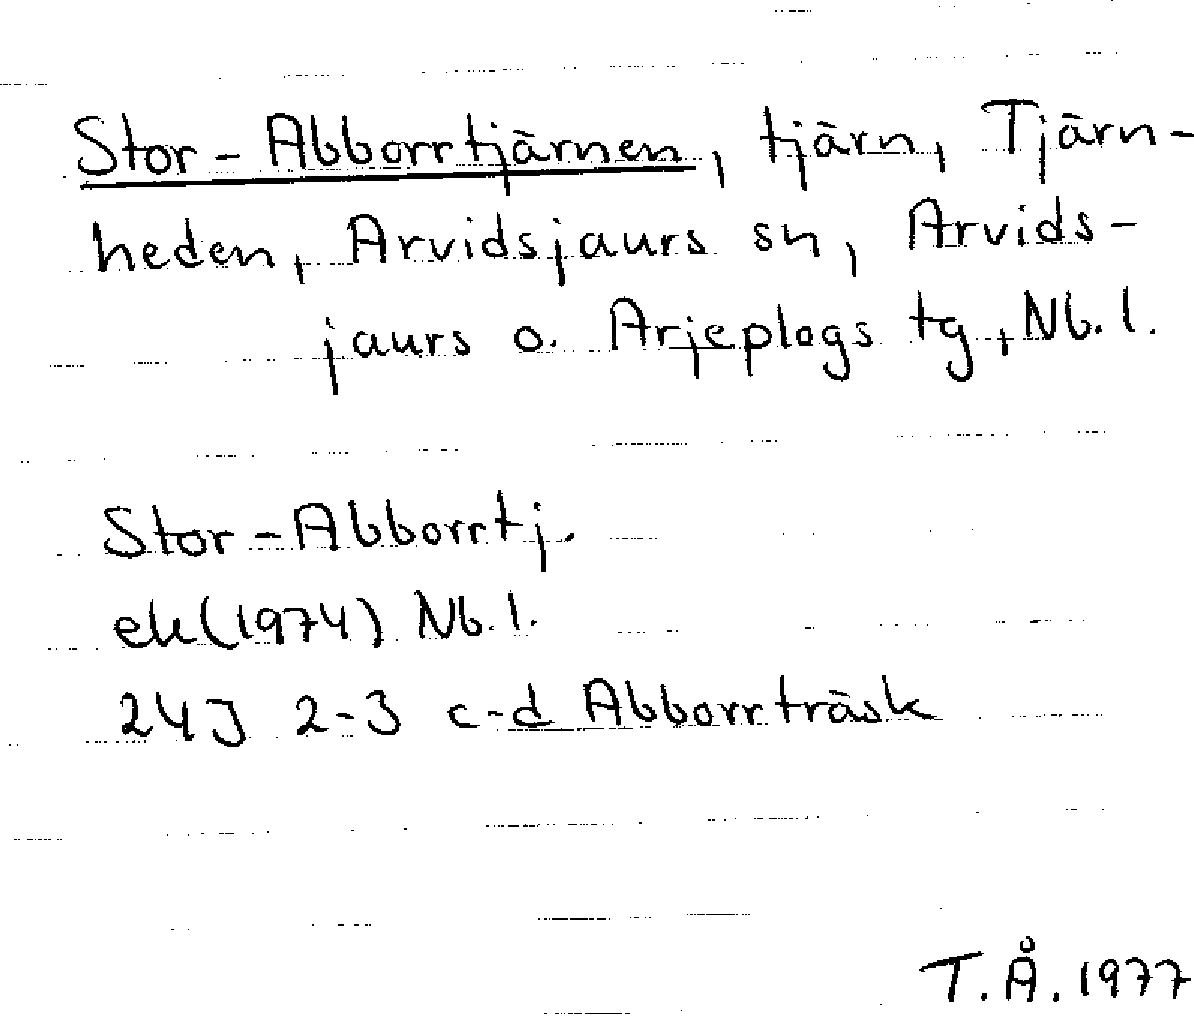 Stor-Abborrtjärnen, tjärn, Tjärn-
heden, Arvidsjaurs sn, Arvids-
jaurs o. Arjeplogs tg, Nb.l.
Stor-Abborrtj.
ek(1974) Nb.l.
24J 2-3 c-d Abborrträsk
T.Å.1977